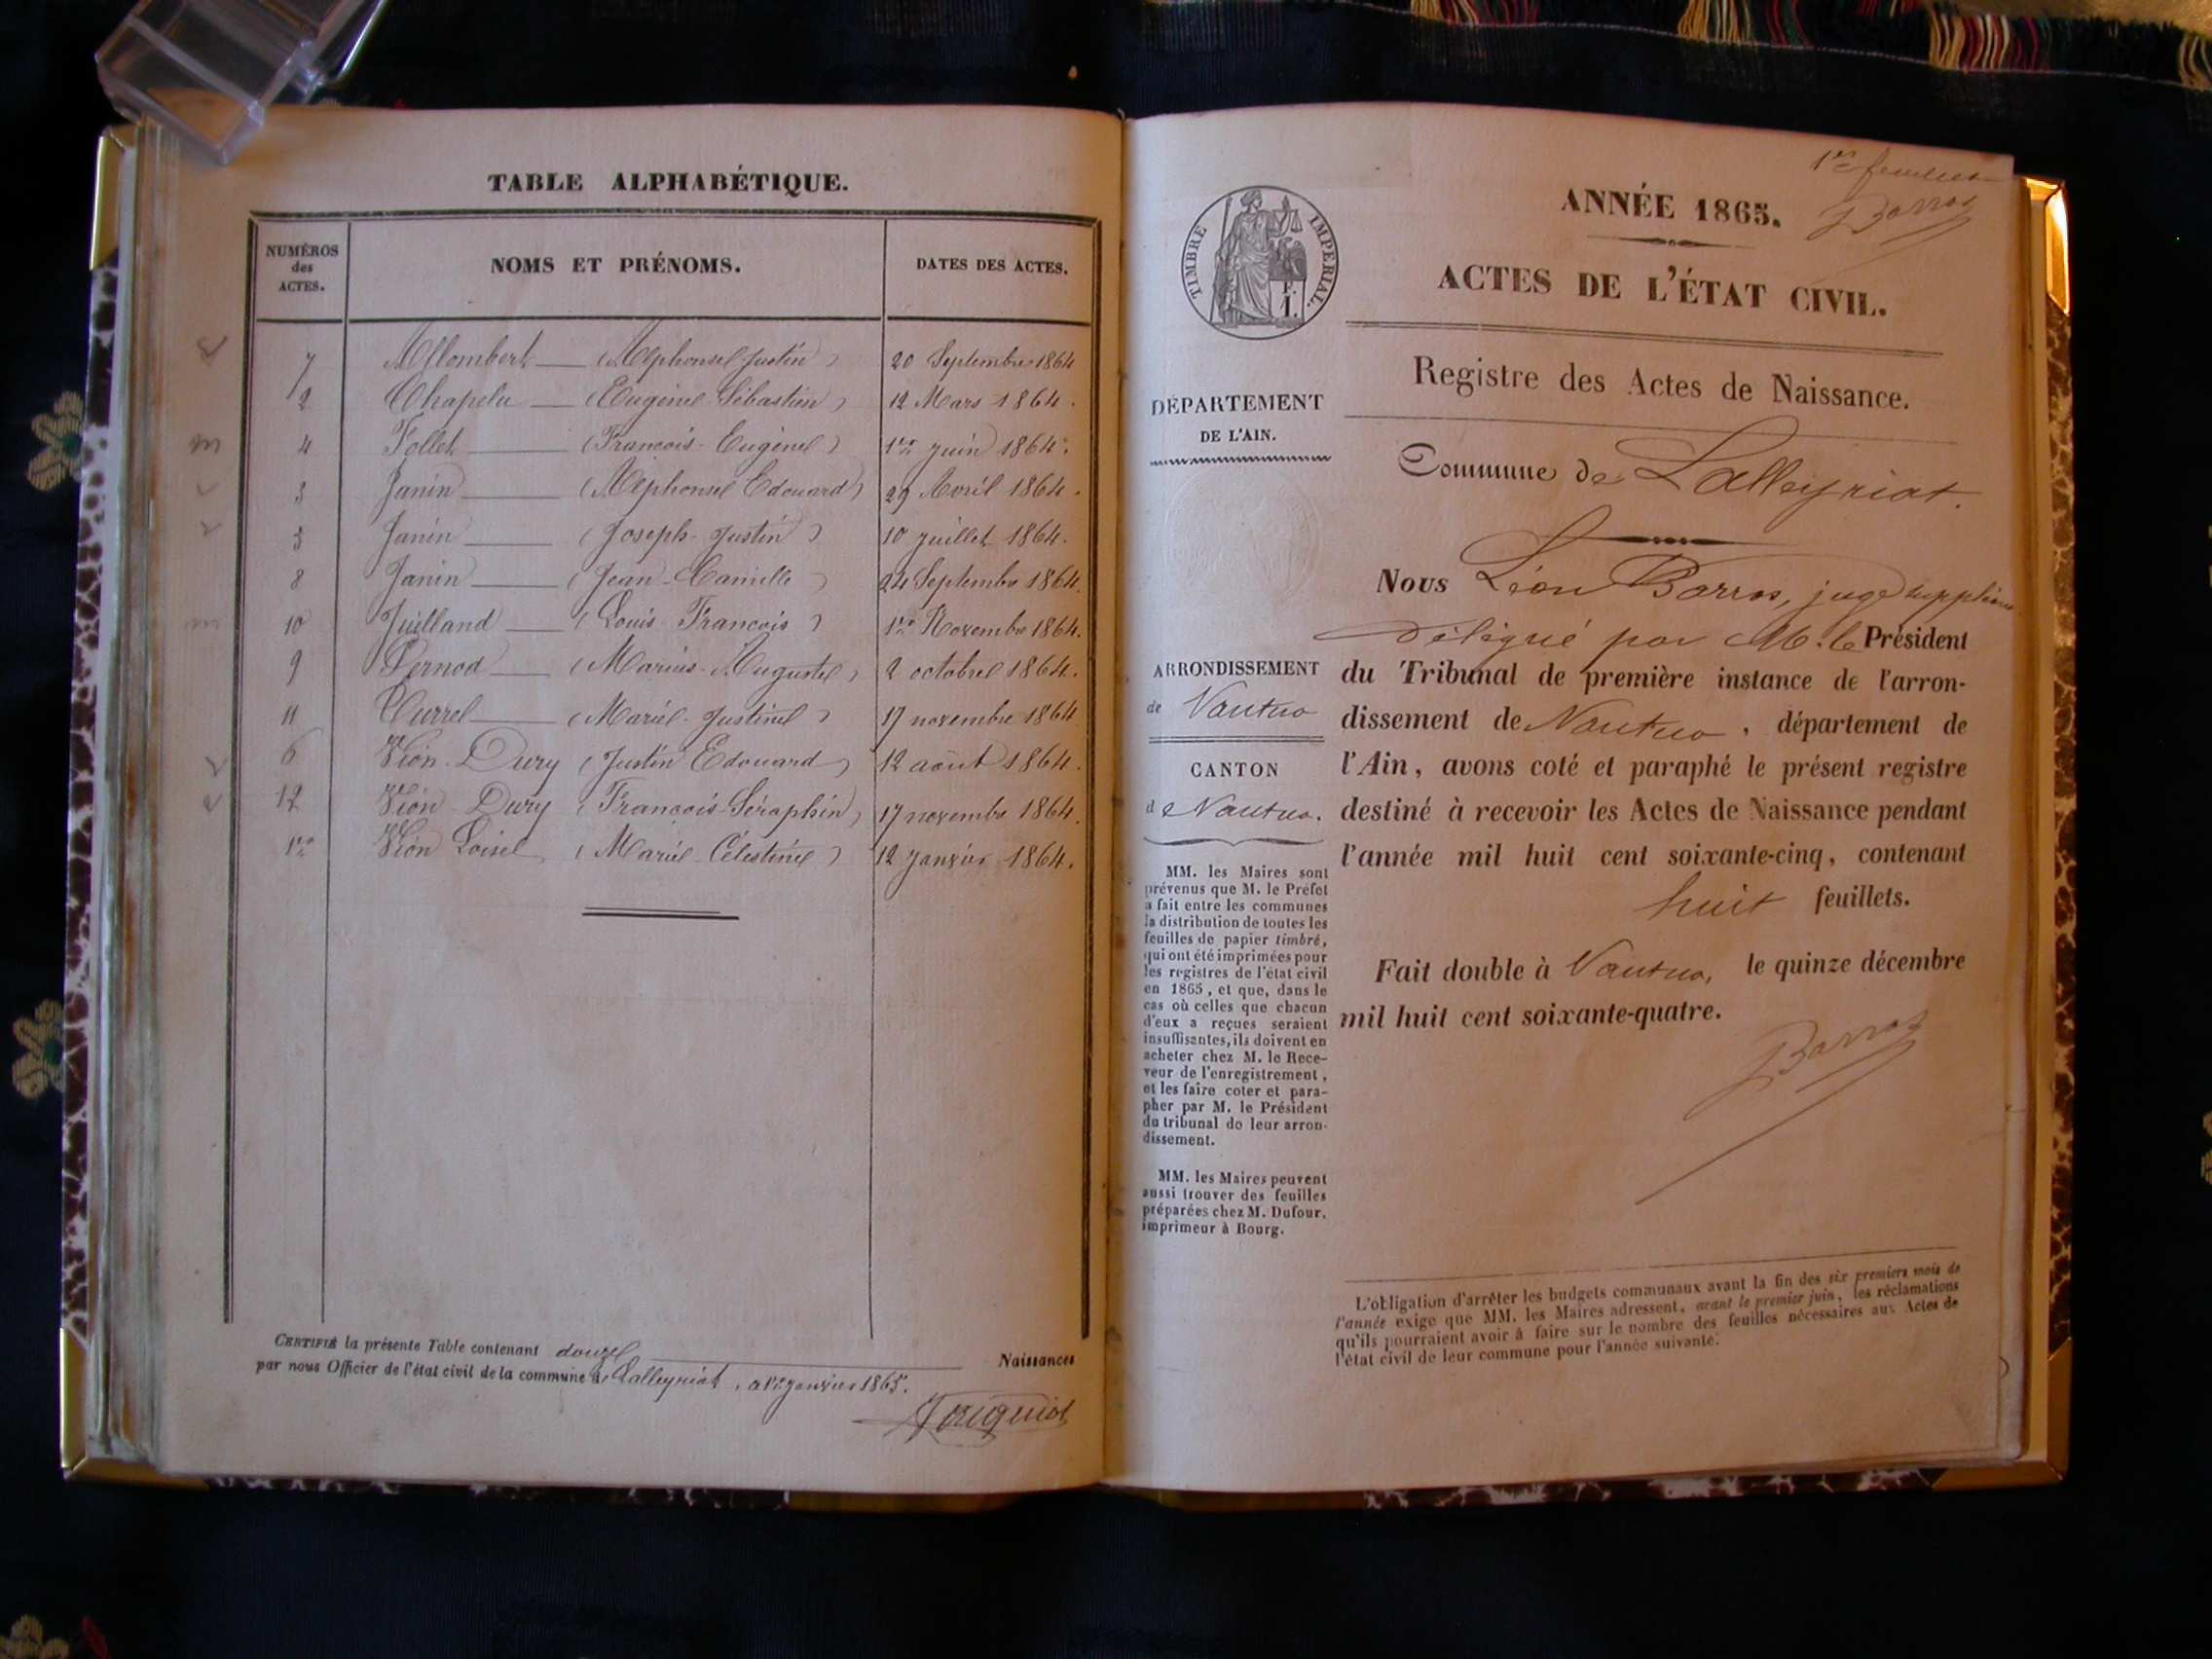 TABLE ALPHABÉTIQUE.
NUMÉROS
des
ACTES.
NOMS ET PRÉNOMS.
DATES DES ACTES.
7 Allombert (Alphonse Justin) 20 Septembre 1864
2 Chapelu (Eugénie Sébastien) 12 Mars 1864.
4 Follet (François-Eugène) 1er juin 1864.
3 Janin (Alphonse Edouard) 29 Avril 1864.
5 Janin (Joseph-Justin) 10 juillet 1864.
8 Janin (Jean-Camille) 24 Septembre 1864.
10 Juilland (Louis François) 1er Novembre 1864.
9 Pernod (Marius-Auguste) 2 octobre 1864.
11 (Marie-Justine) 17 novembre 1864
6 Vion-Dury (Justin Edouard) 12 août 1864.
12 Vion-Dury (François-Séraphin) 17 novembre 1864.
1er Vion Loisel (Marie-Célestine) 12 janvier 1864.
CERTIFIÉ la présente Table contenant douze Naissances
par nous Officier de l'état civil de la commune de Lalleyriat, janvier 1865.
1er feuillet
Barros
ANNÉE 1865.
TIMBRE IMPÉRIAL.
ACTES DE L'ÉTAT CIVIL.
Registre des Actes de Naissance.
DÉPARTEMENT
DE L'AIN.
Commune de Lalleyriat.
Nous Léon Barros, juge suppléant
délégué par M. le Président
ARRONDISSEMENT
de Nantua
CANTON
de Nantua.
du Tribunal de première instance de l'arron-
dissement de Nantua, département de
l'Ain, avons coté et paraphé le présent registre
destiné à recevoir les Actes de Naissance pendant
l'année mil huit cent soixante-cinq, contenant
huit feuillets.
Fait double à Nantua, le quinze décembre
mil huit cent soixante-quatre.
Barros
MM. les Maires sont
prévenus que M. le Préfet
a fait entre les communes
la distribution de toutes les
feuilles de papier timbré,
qui ont été imprimées pour
les registres de l'état civil
en 1865, et que, dans le
cas où celles que chacun
d'eux a reçues seraient
insuffisantes, ils doivent en
acheter chez M. le Rece-
veur de l'enregistrement,
et les faire coter et para-
pher par M. le Président
du tribunal de leur arron-
dissement.
MM. les Maires peuvent
aussi trouver des feuilles
préparées chez M. Dufour,
imprimeur à Bourg.
L'obligation d'arrêter les budgets communaux avant la fin des six premiers mois de
l'année exige que MM. les Maires adressent, avant le premier juin, les réclamations
qu'ils pourraient avoir à faire sur le nombre des feuilles nécessaires aux Actes de
l'état civil de leur commune pour l'année suivante.